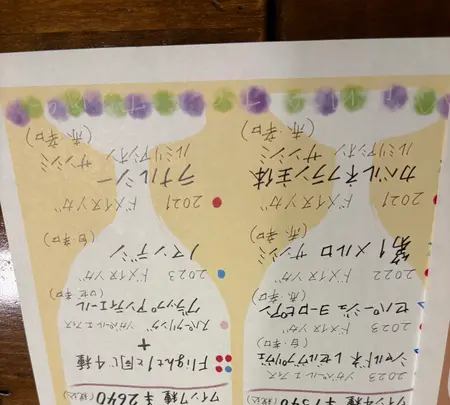 ワイン4種 (税込)
2023 ソガペール エフィス
シャルドネ レゼルブプリヴェ
(白・辛口)
2023 ドメイヌソガ
セパージュヨーロピアン
(赤・辛口)
2022 ドメイヌソガ
第1 メルロ サンシミ
(赤・辛口)
2021 ドメイヌソガ
カベルネフラン主体
サンシミ
(赤・辛口)
ワイン7種 ¥2640 (税込)
Flight1と同じ4種
+
スパークリング ソガペールエフィス
グラップアンティエール
(ロゼ・辛口)
2023 ドメイヌソガ
ノマンデン
(白・辛口)
2021 ドメイヌソガ
サンシミ
(赤・辛口)